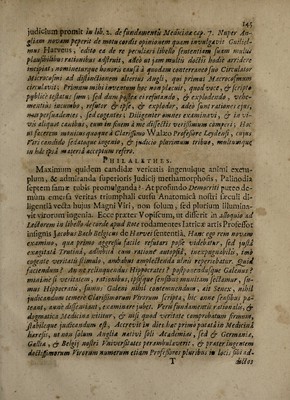 145
judicium promit in lib. 2. de fundamentis Medicinæ cap. 7. Nuper An-
gliam novam peperit de motu cordis opinionem quam invulgavit Guiliel-
mus Harveus, edita ea de re peculiari libello sententiam suam multis
plausibilibus rationibus adstruit, adeo ut jam multis doctis hadte arridere
incipiat, nominatque honoris causâ à quodam conterraneo suo Circulator
Microcosmi ad distinctionem alterius Angli, qui primus Macrocosmum
circulavit. Primum mihi inventum hoc non placuit, quod voce, & scripto
publice testatus sum, sed dum postea ei refutando, & explodendo, vehe-
mentius incumbo, refutor & ipse, & explodor, adeo sunt rationes ejus,
non persuadentes, sed cogentes: Diligenter omnia examinavi, & in vi-
vis aliquot canibus, eum in finem à me dissectis verissimum comperi; Hæc
ut facerem monuit quoque à Clarissimo Walæo Professore Leydensi, cujus
Viri candido sedatoque ingenio, & judicio plurimum tribuo, multumque
in his ipsâ materiâ acceptum refero.
PHILALETHES.
Maximum quidem candidæ veritatis ingenuique animi exem-
plum, & admiranda superioris Judicij metamorphosis, Palladiis
septem famæ tubis promulganda! At profundo Democriti puteo de-
mum emersa veritas triumphali curru Anatomico nostri seculi di-
ligentiâ vecta hujus Magni Viri, non solum, sed plurium illumina-
vit virorum ingenia. Ecce præter Vopiscum, ut disserit in alloquio ad
Lectorem in libello de corde apud Bene todamentes Iatricæ artis Professor
insignis Jacobus Back Belgicus de Harvei sententiâ, Hanc ego rem novam
examino, quæ primo aggressu facile refutari posse videbatur, sed justâ
exagitatâ Trutinâ, adhibitâ cum ratione autopsiâ, inexpugnabilis, imò
cogente veritatis stimulo, ambabus amplectenda ulnis reperiebatur. Quid
faciendum? An nos relinquendus Hippocrates? postponendusque Galenus?
minime si veritatem, rationibus, ipsisque sensibus munitam sectamur, su-
mus Hippocratis, sumus Galeni nihil controvertendum, ait Senex, nihil
judicandum temere Clarissimorum Virorum scripta; hic annè sensibus pa-
teant, annè dissentiant, examinare jubet. Veri fundamentis rationalis, &
dogmatica Medicina nititur, & nisi quod veritate comprobatum firmum,
stabileque judicandum est, Accrevit in dies hæc primo putata in Medicinâ
hæresis, ut non solum Anglia nativi soli Academias, sed & Germaniæ,
Gallia, & Belgij nostri Universitates perambulaverit, & præter ingentem
doctissimorum Virorum numerum etiam Professores pluribus in locis sibi ad-
T dictos